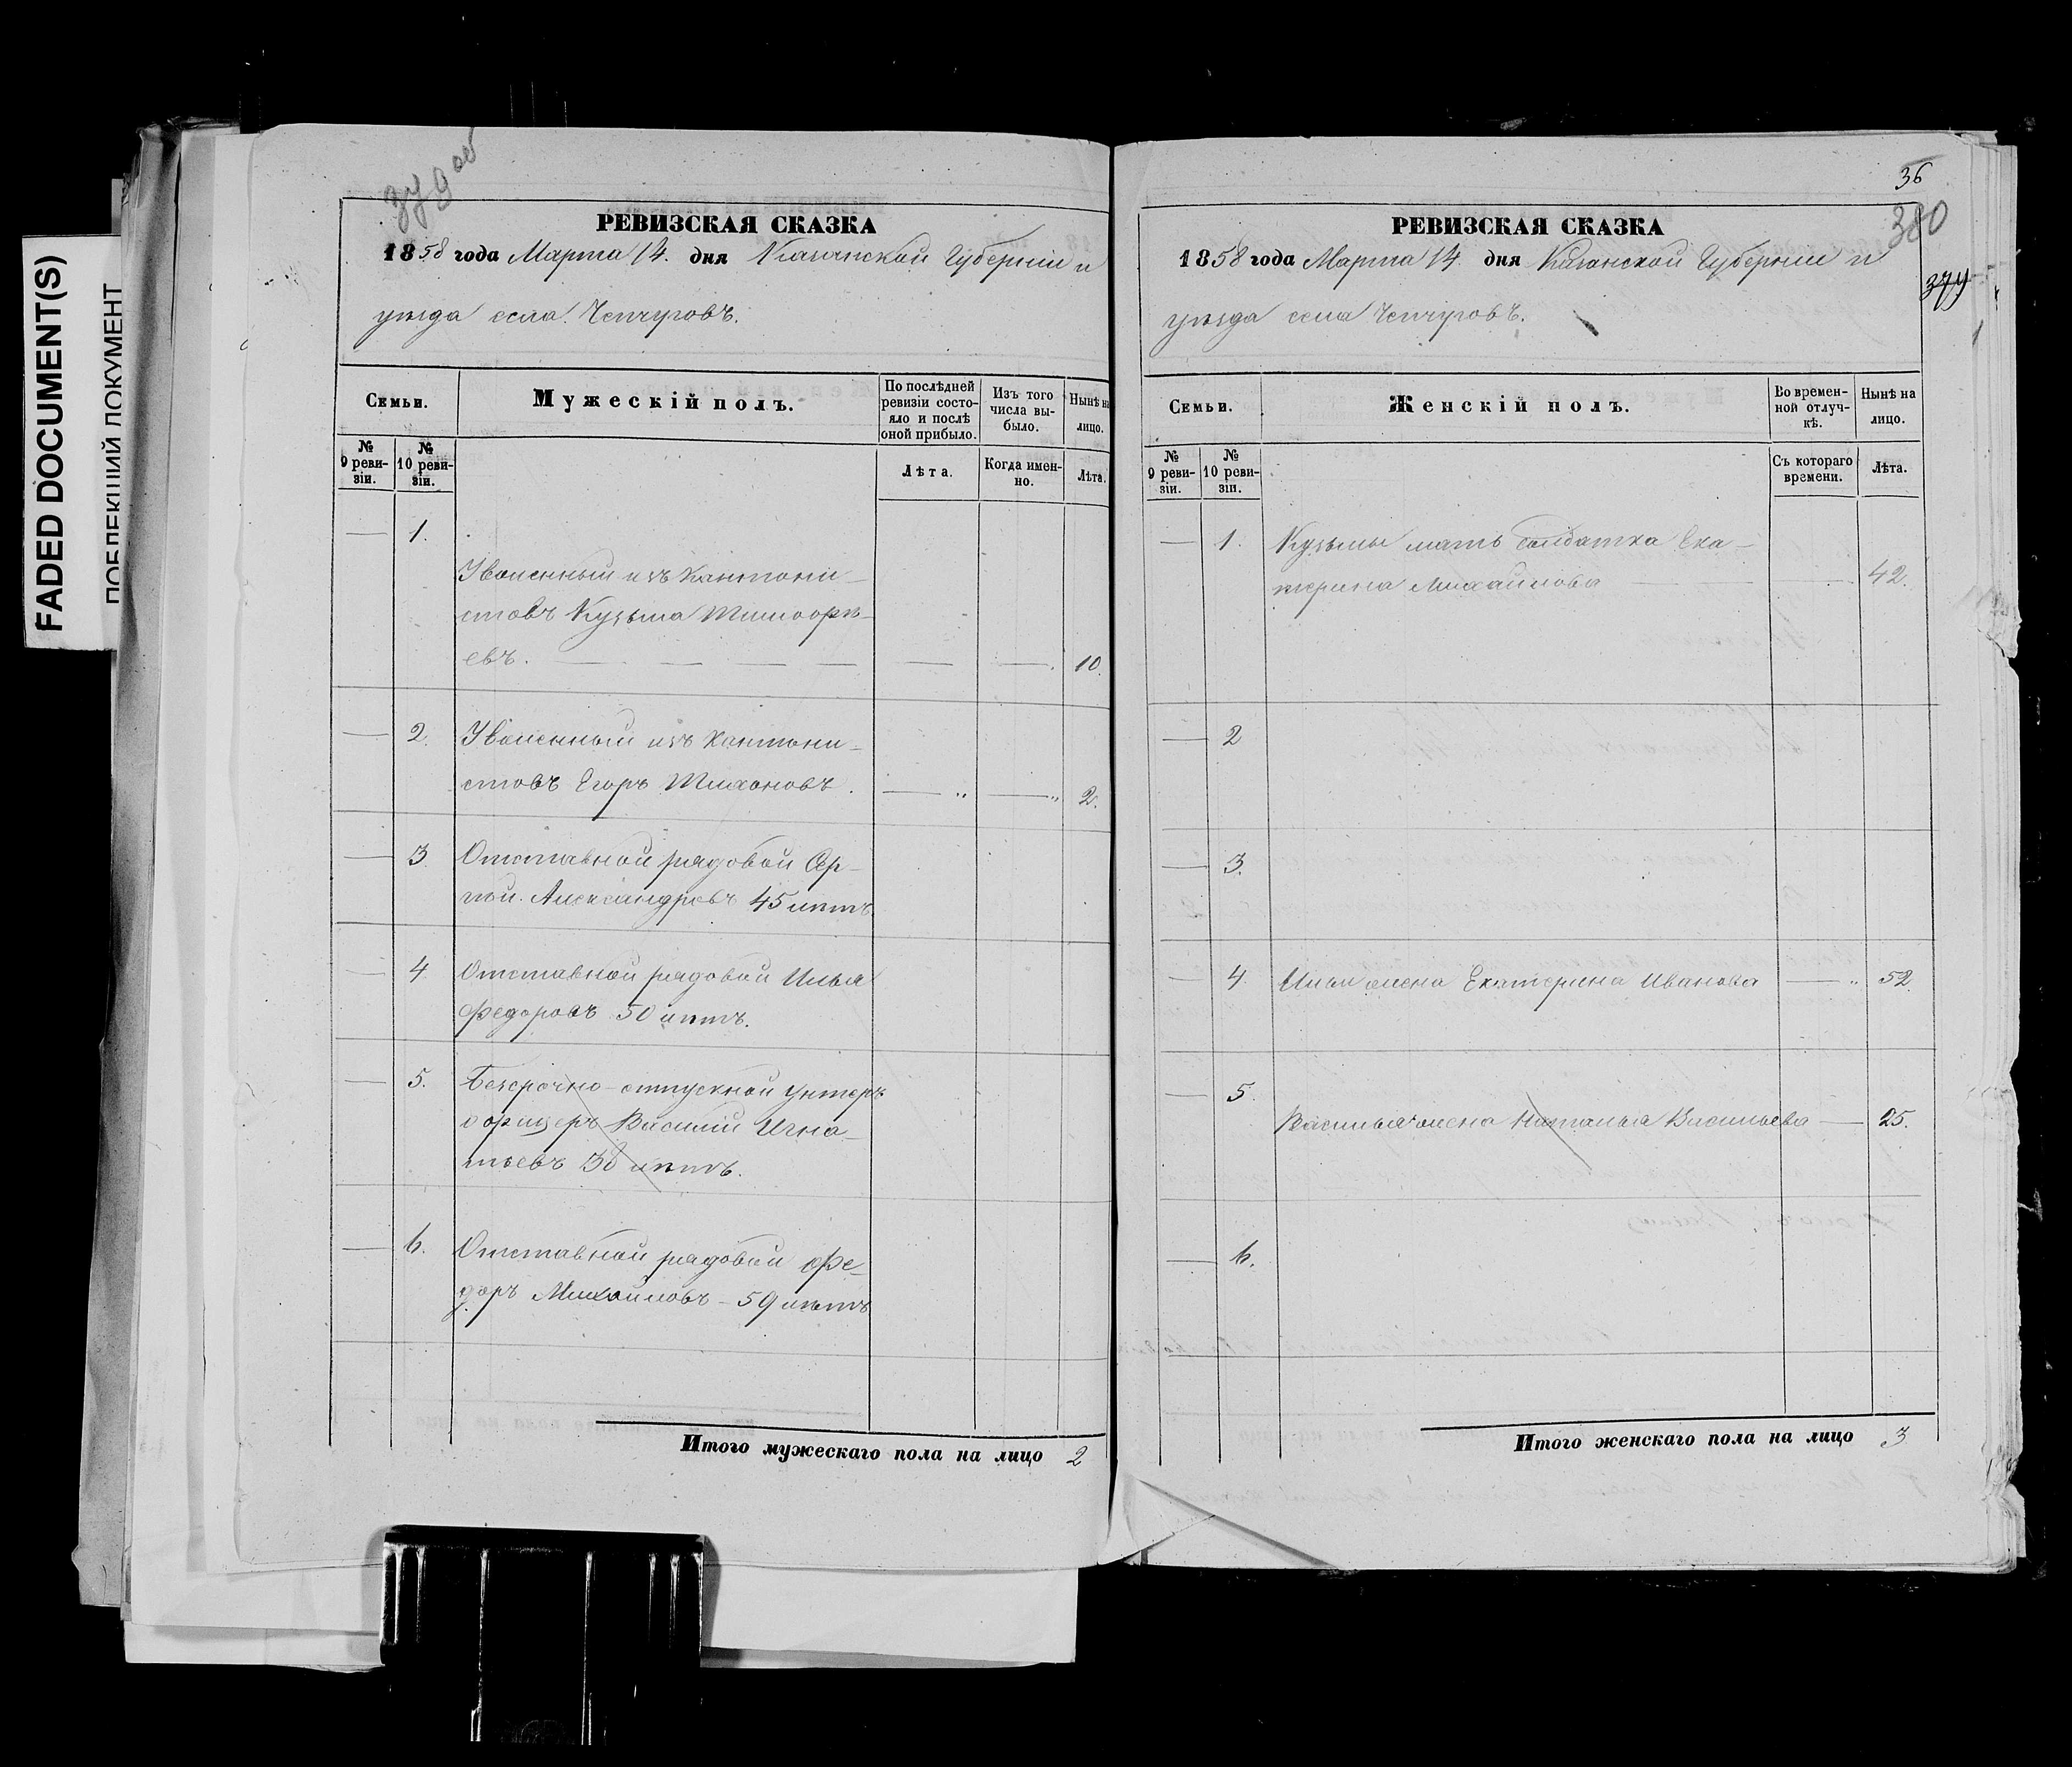 FADED DOCUMENT(S)
379 об
РЕВИЗСКАЯ СКАЗКА
1858 года Марта 14. дня Казанской Губерніи и
уѣзда села Чепчуговъ.
Семьи.
Мужескій полъ.
По послѣдней ревизіи состояло и послѣ оной прибыло.
Изъ того числа выбыло.
Нынѣ на лицо.
№ 9 ревизіи.
№ 10 ревизіи.
Лѣта.
Когда именно.
Лѣта.
1.
Уволенный изъ Кантони-
стовъ Кузьма
евъ. 10.
2. Уволенный изъ Кантони-
стовъ Егоръ Тихоновъ. 2.
3. Отставной рядовой
Александровъ 45 лѣтъ.
4 Отставной рядовой Илья
Федоровъ 50 лѣтъ.
5. Безсрочно-отпускной унтеръ
офицеръ Василій Игна-
тьевъ 30 лѣтъ.
6. Отставной рядовой Фе-
доръ Михайловъ – 59 лѣтъ
Итого мужескаго пола на лицо 2
36
380
379
РЕВИЗСКАЯ СКАЗКА
1858 года Марта 14. дня Казанской Губерніи и
уѣзда села Чепчуговъ.
Семьи.
Женскій полъ.
Во временной отлучкѣ.
Нынѣ на лицо.
№ 9 ревизіи.
№ 10 ревизіи.
Съ котораго времени.
Лѣта.
1. Кузьмы мать солдатка Ека-
терина Михайлова 42.
2
3.
4. Ильи жена Екатерина Иванова 52.
5.
Василья жена Наталья Васильева 25.
6.
Итого женскаго пола на лицо 3